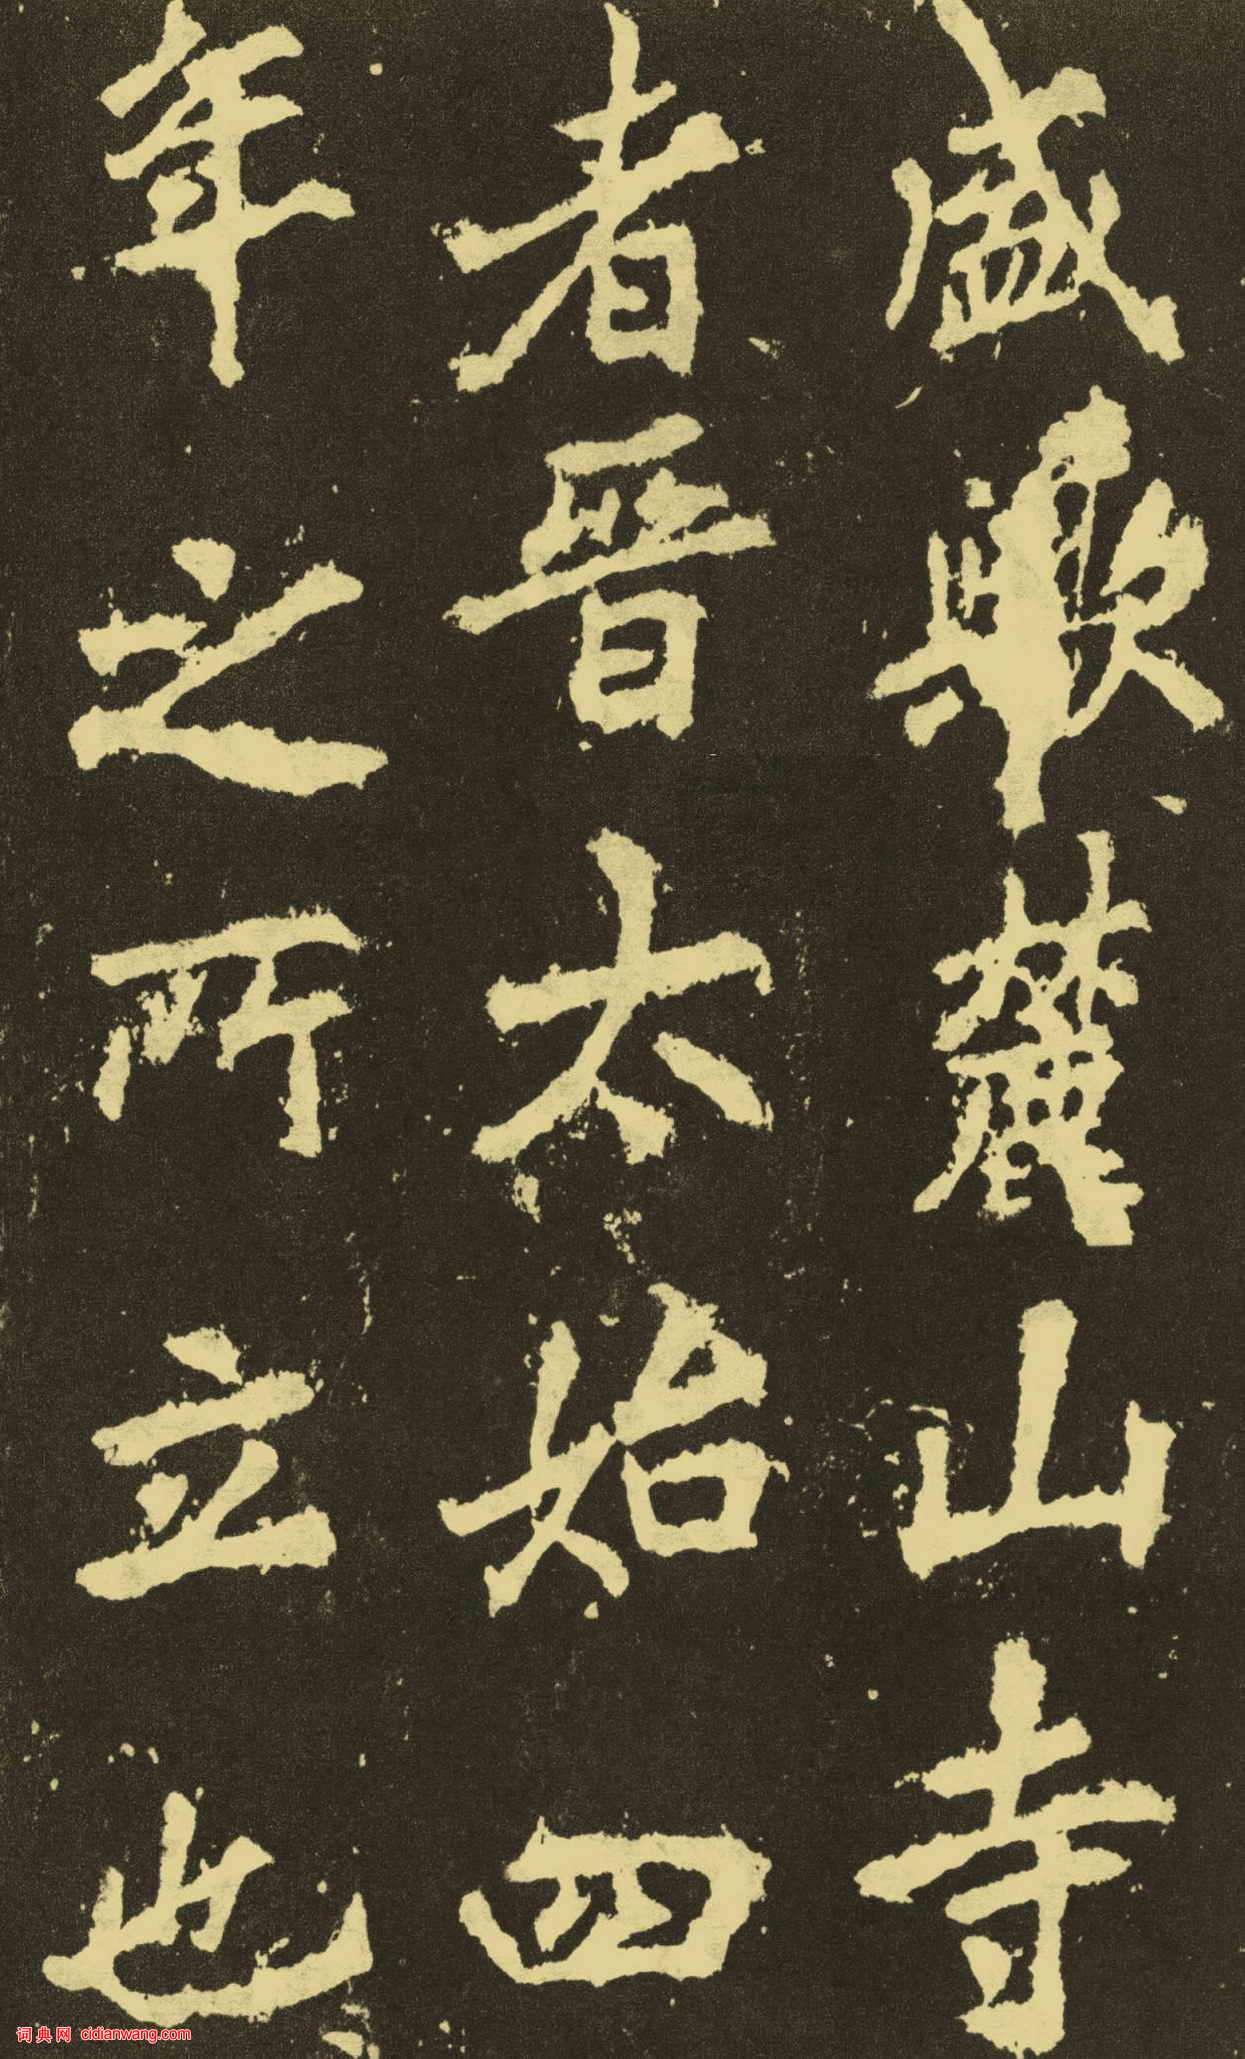 盛歟麓山寺
者晉太始四
年之所立也
词典网 cidianwang.com